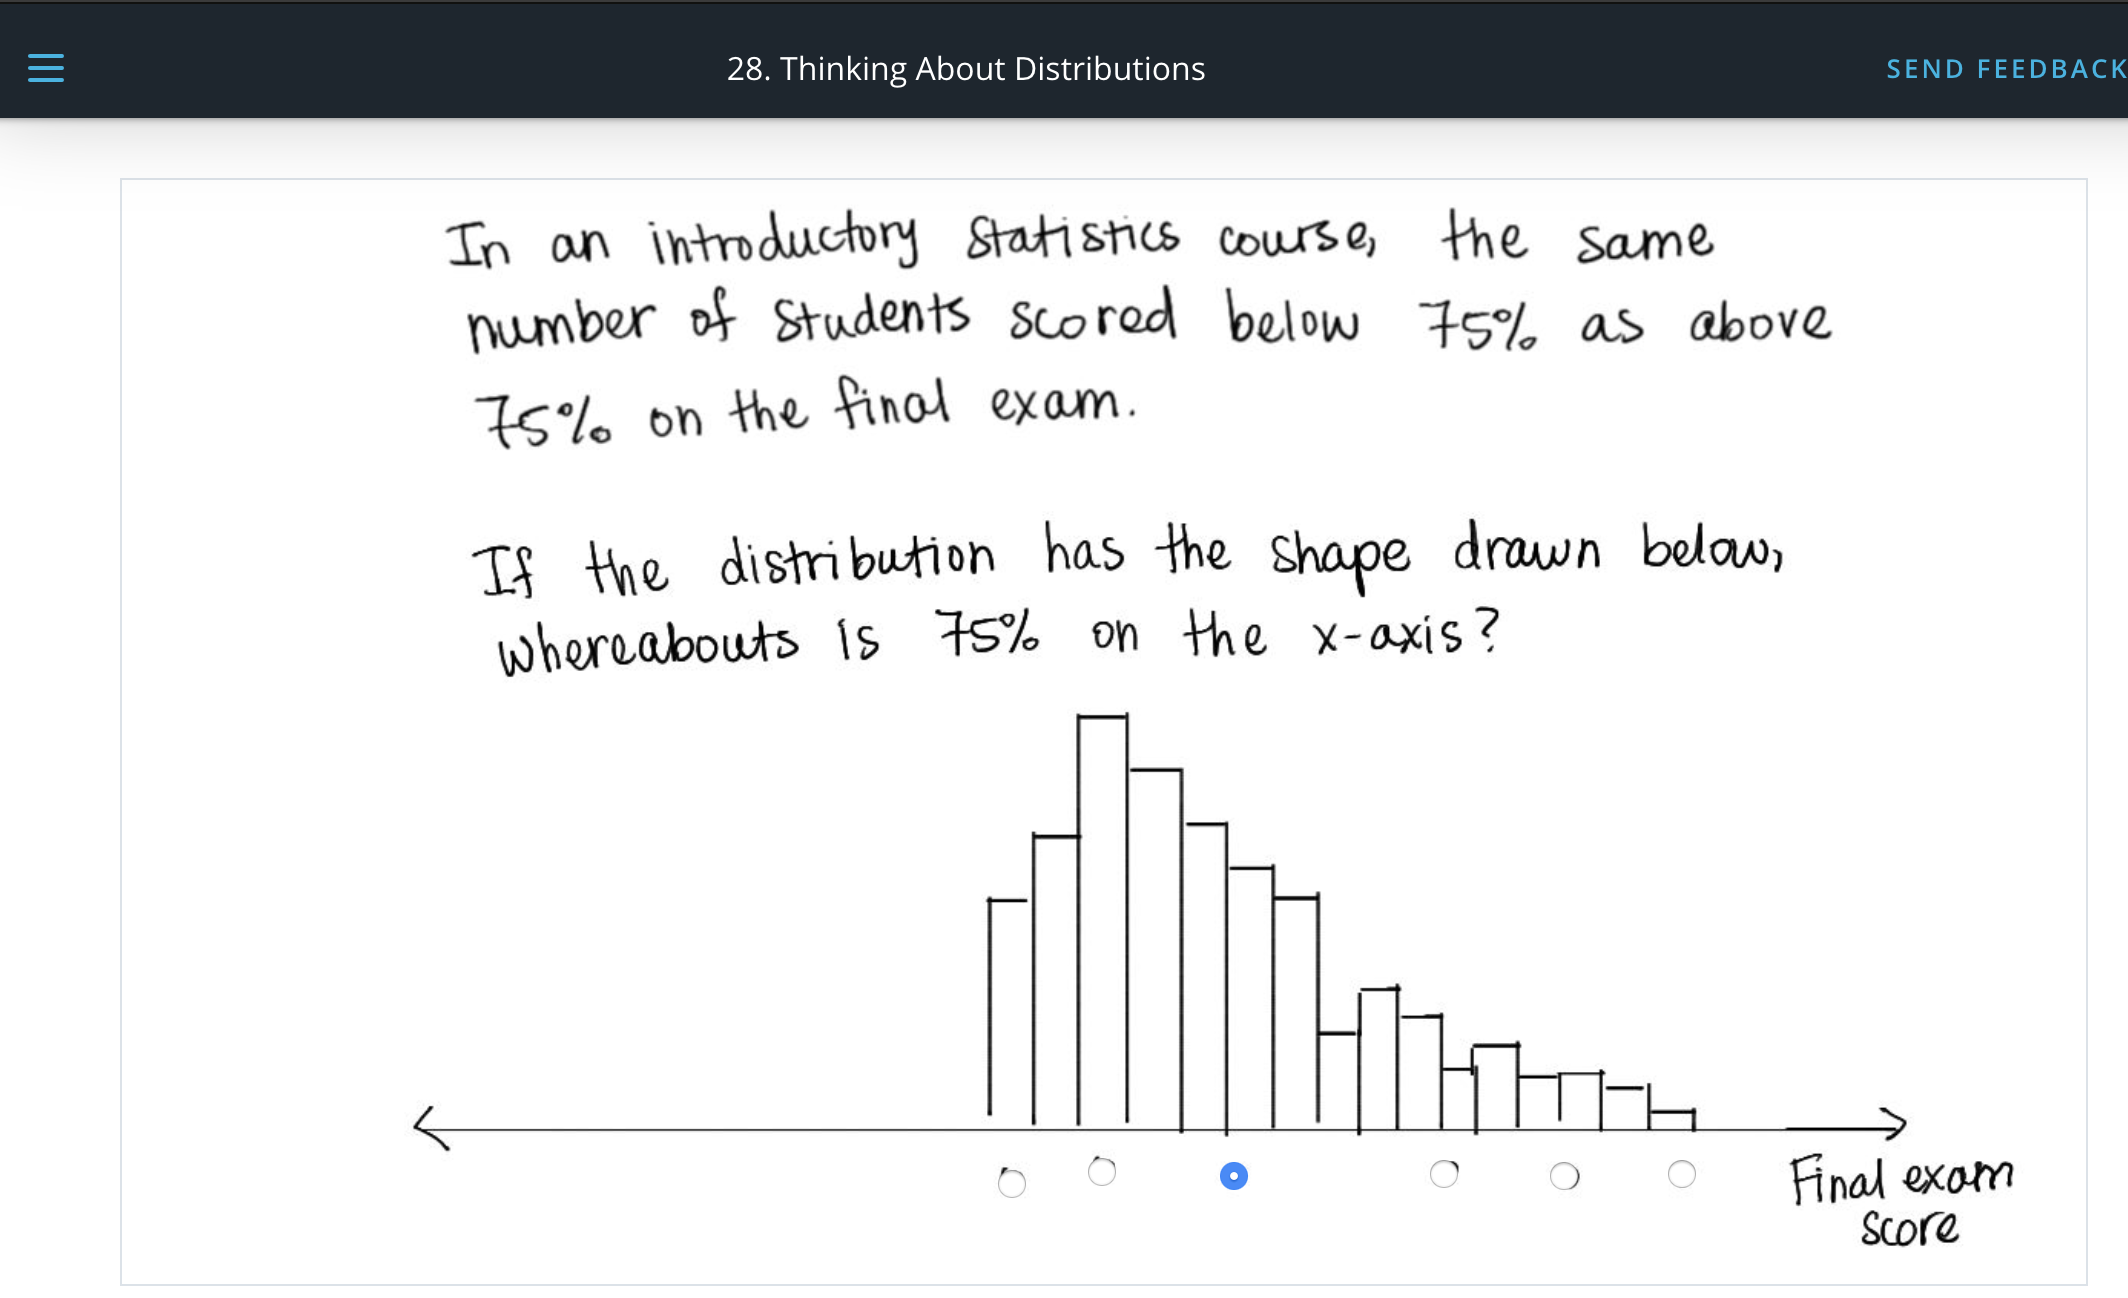 28. Thinking About Distributions
SEND FEEDBACK
In an introductory statistics course, the same
number of students scored below 75% as above
75% on the final exam.
If the distribution has the shape drawn below,
whereabouts is 75% on the x-axis?
Final exam
score